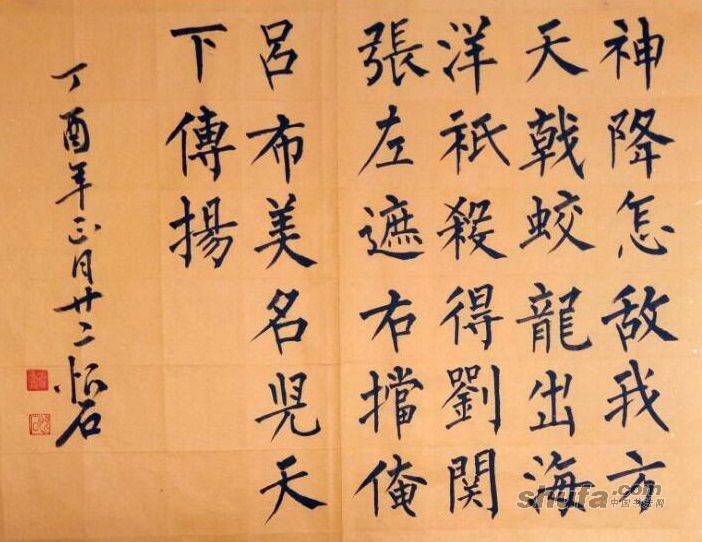 神降怎敌我方
天戟蛟龍出海
洋祇殺得劉関
張左遮右擋俺
呂布美名児天
下傳揚
丁酉年正月廿二 石
shufa.com
中国书法网